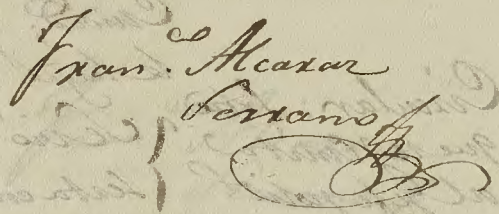 Fran.co Alcaraz
Serrano